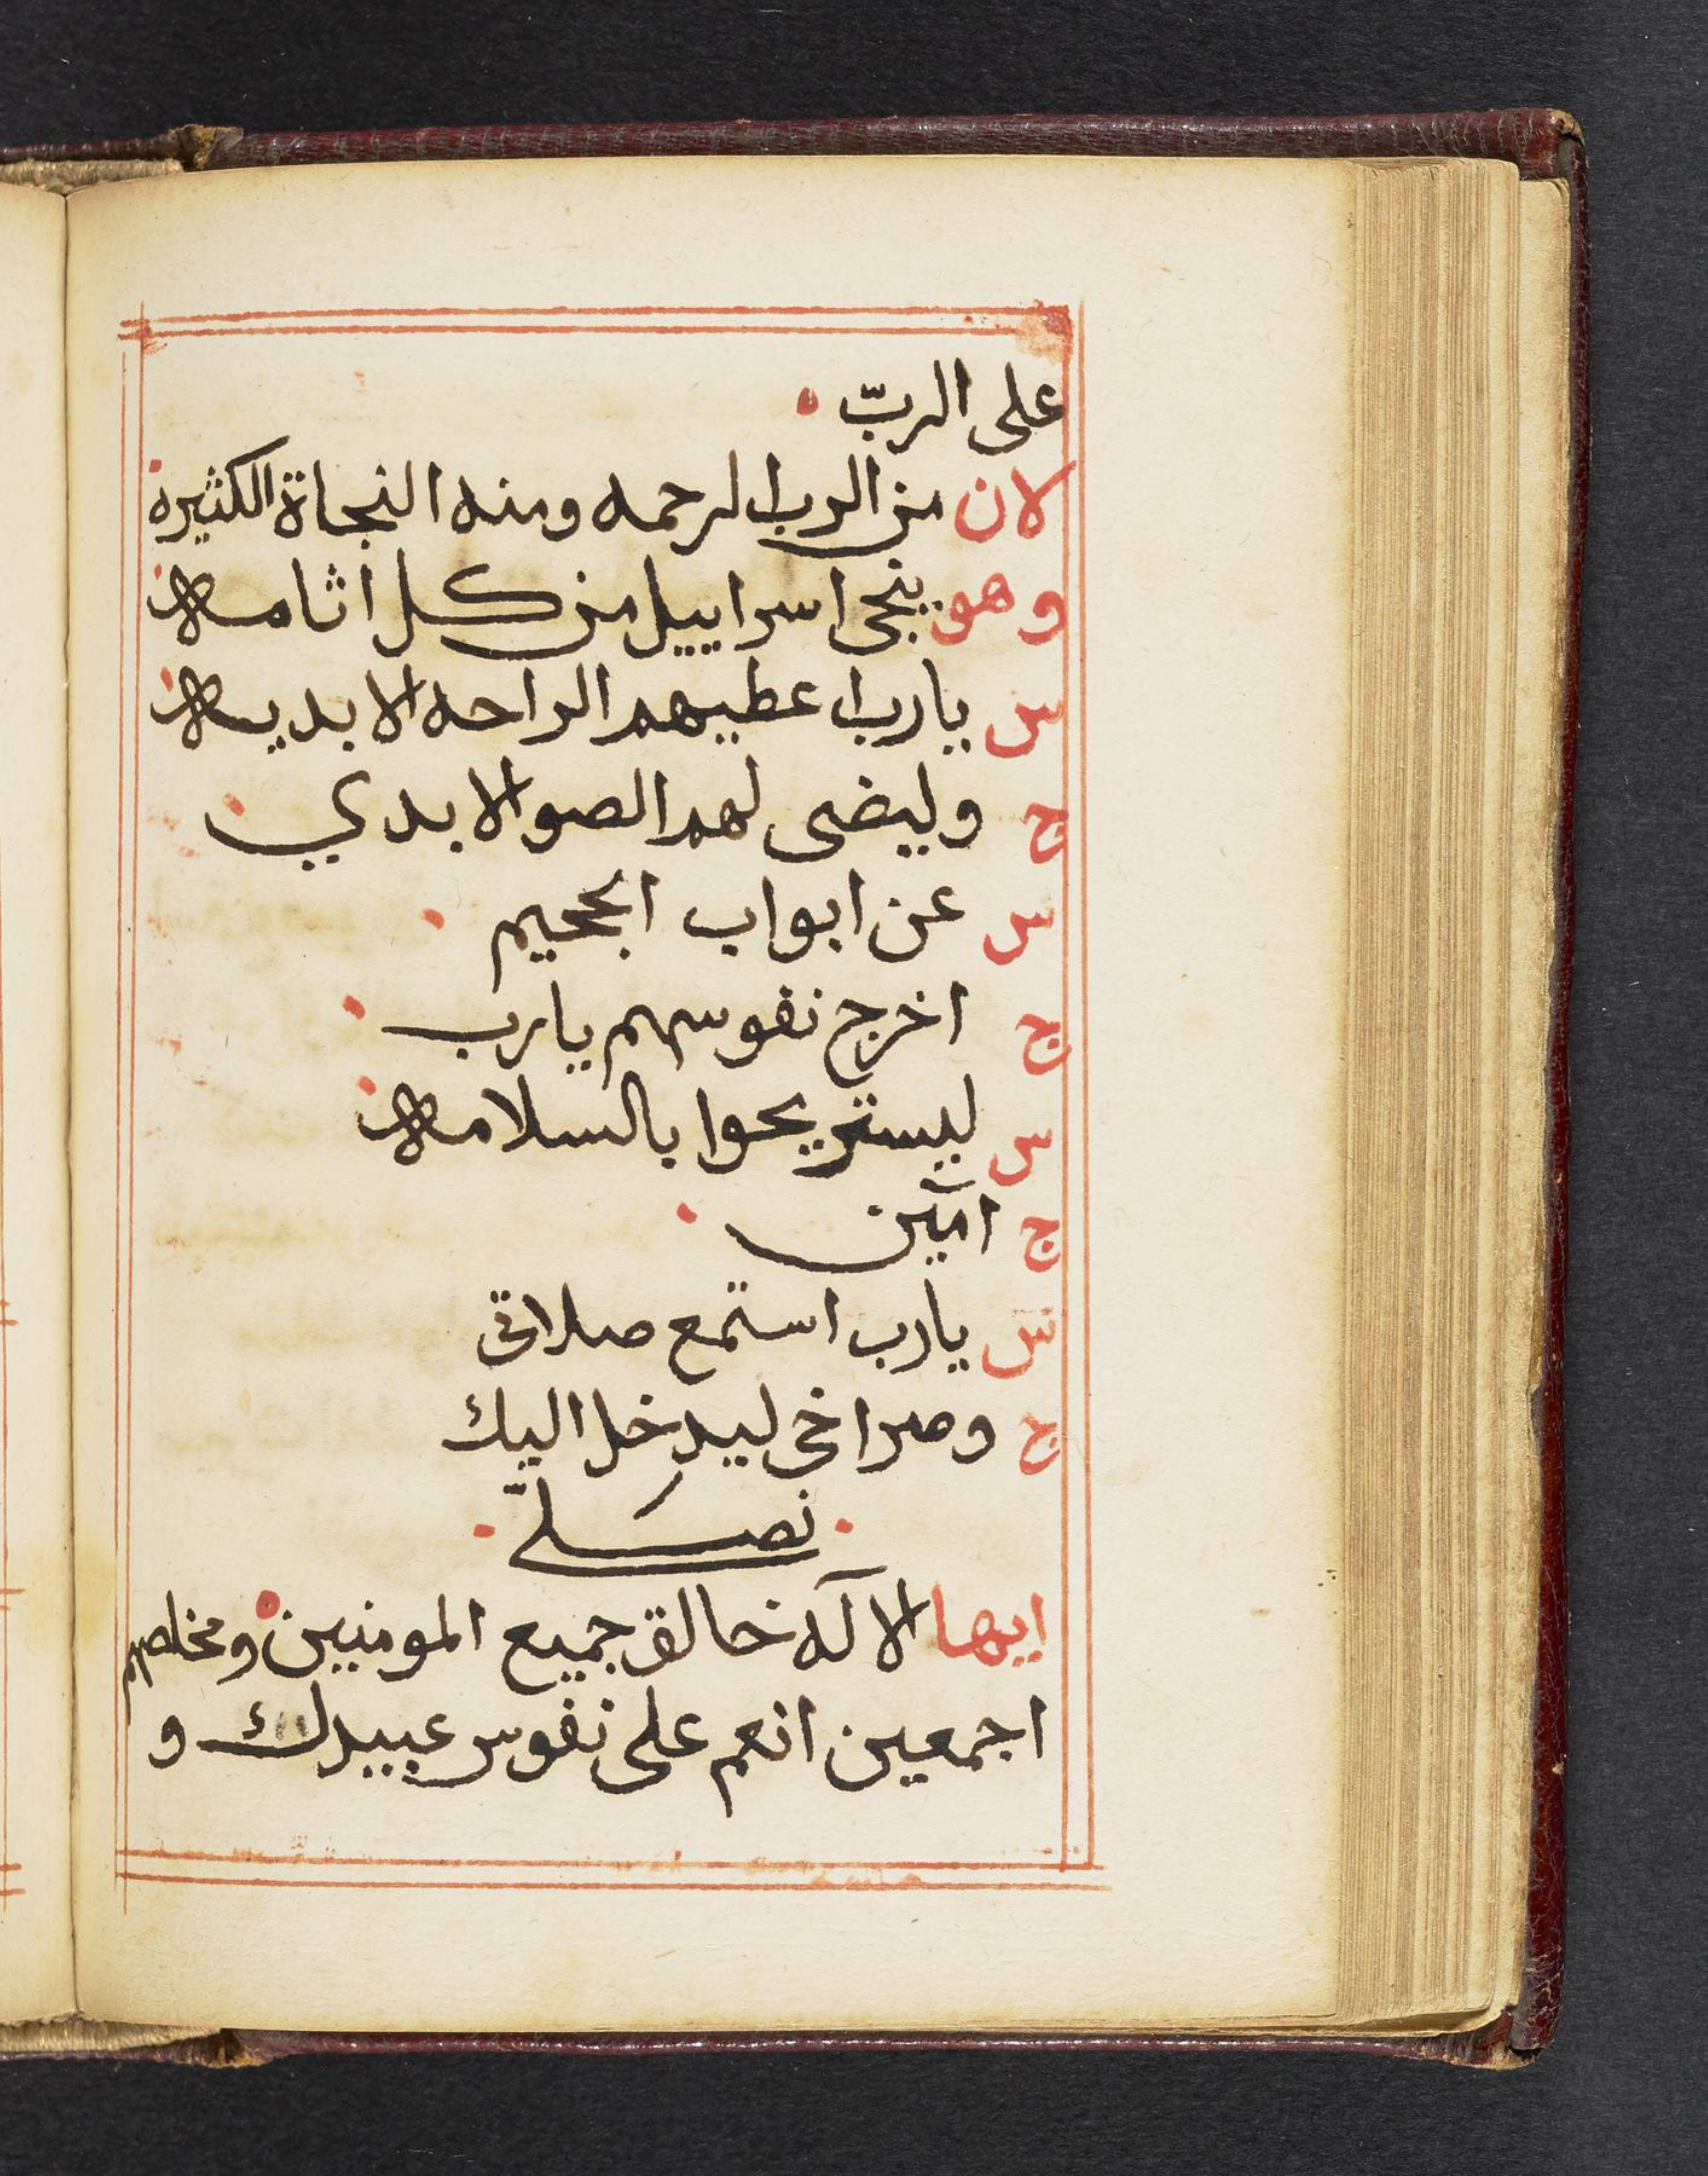 على الربّ
لان من الرب الرحمه ومنه النجاة الكثيره
وهو ينجى اسراييل من كل اثامه
س يارب اعطيهم الراحه الابديه
ج وليضى لهم الصو الابدي
س عن ابواب الجحيم
ج اخرج نفوسهم يارب
س ليستريحوا بالسلامه
ج امين
س يارب استمع صلاتى
ج وصراخى ليدخل اليك
نصلى
ايها الاله خالق جميع المومنين ومخلصهم
اجمعين انعم على نفوس عبيدك و